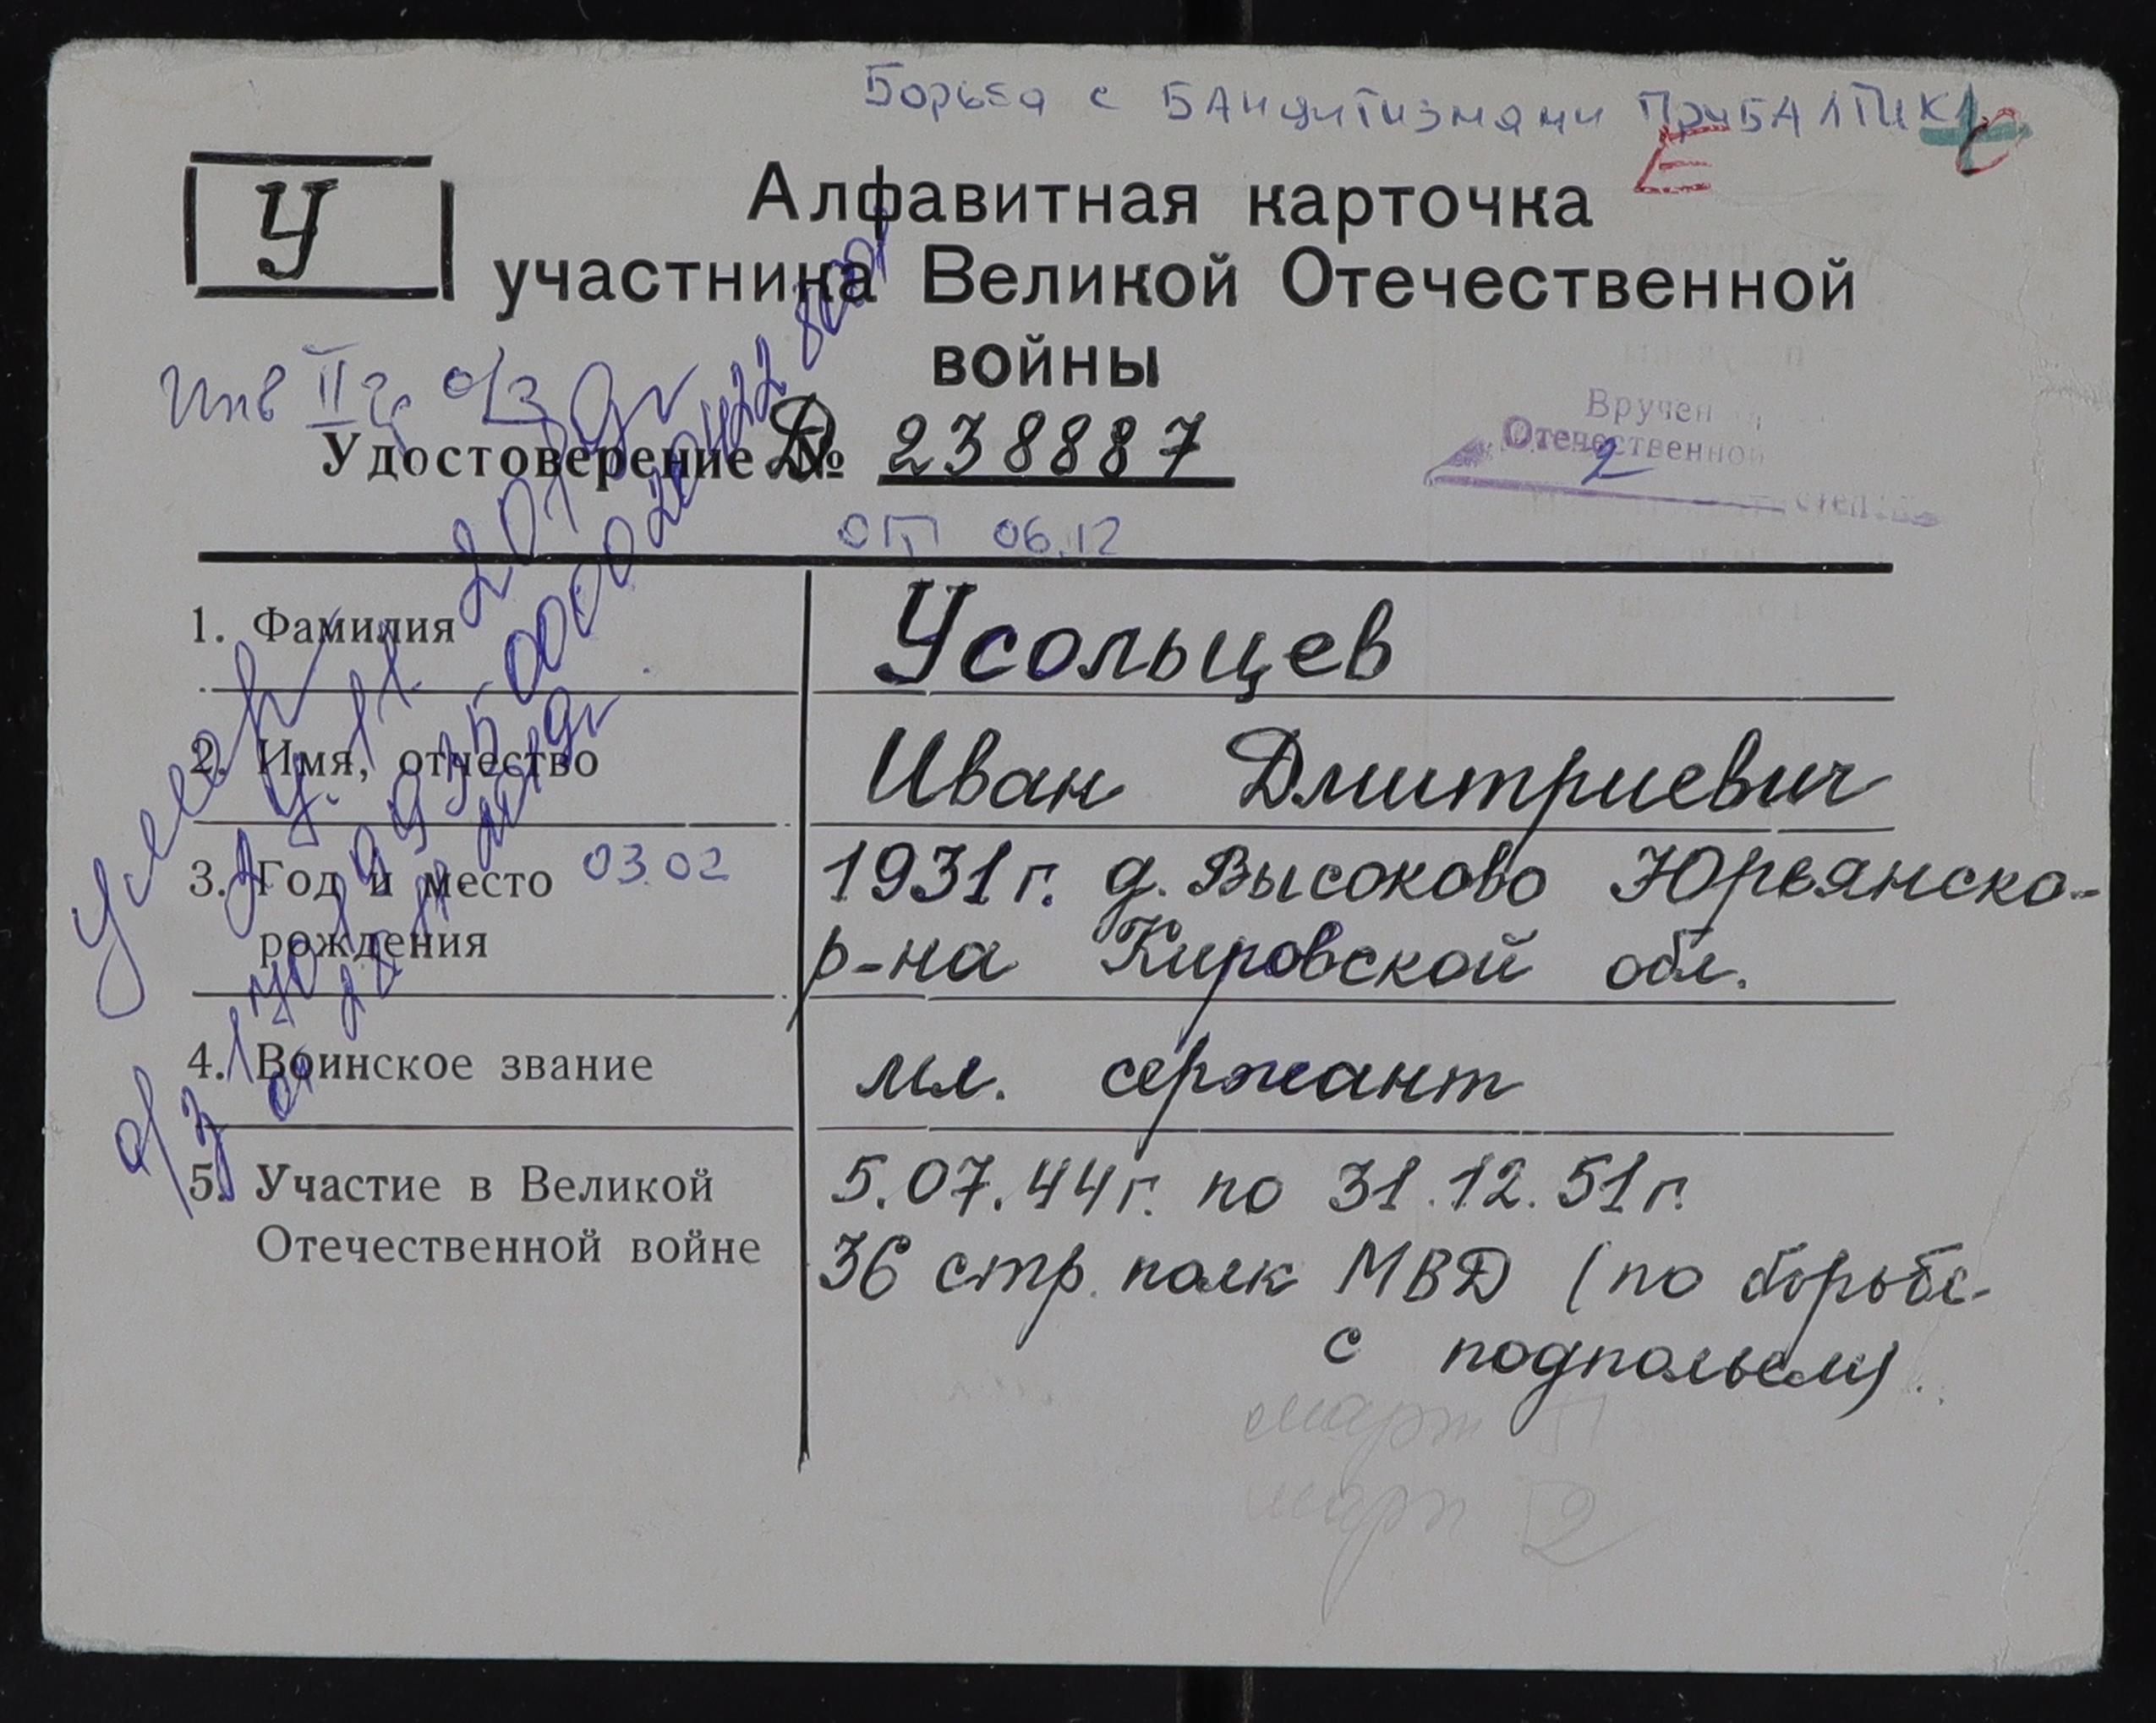 Борьба с БАндитизмами ПриБАЛТИКА
У
Алфавитная карточка
участника Великой Отечественной
войны
Инв II гр о/з
Удостоверение Д № 238887
Вручен
Отечественной
2
степени
от 06.12
1. Фамилия Усольцев
2. Имя, отчество Иван Дмитриевич
3. Год и место 03.02 1931 г. д. Высоково Юрьянско-
рождения р-на Кировской обл.
4. Воинское звание мл. сержант
5. Участие в Великой 5.07.44 г. по 31.12.51 г.
Отечественной войне 36 стр. полк МВД (по борьбе
с подпольем).
март
март 2
умер